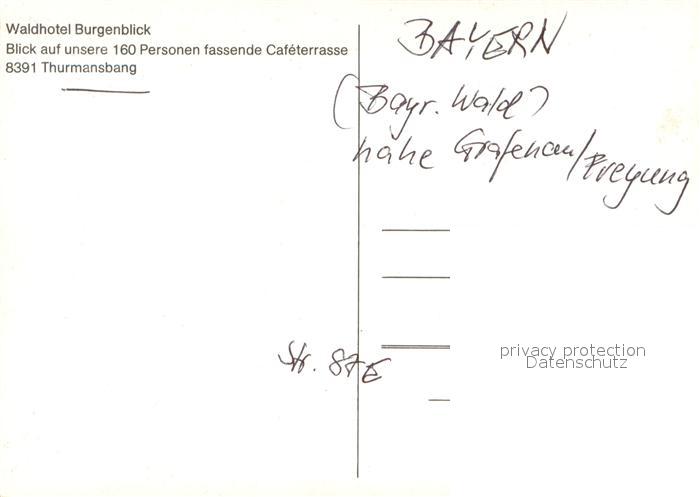 Waldhotel Burgenblick
Blick auf unsere 160 Personen fassende Caféterrasse
8391 Thurmansbang
BAYERN
(Bayr. Wald)
nahe Grafenau/Freyung
Str. 87E
privacy protection
Datenschutz